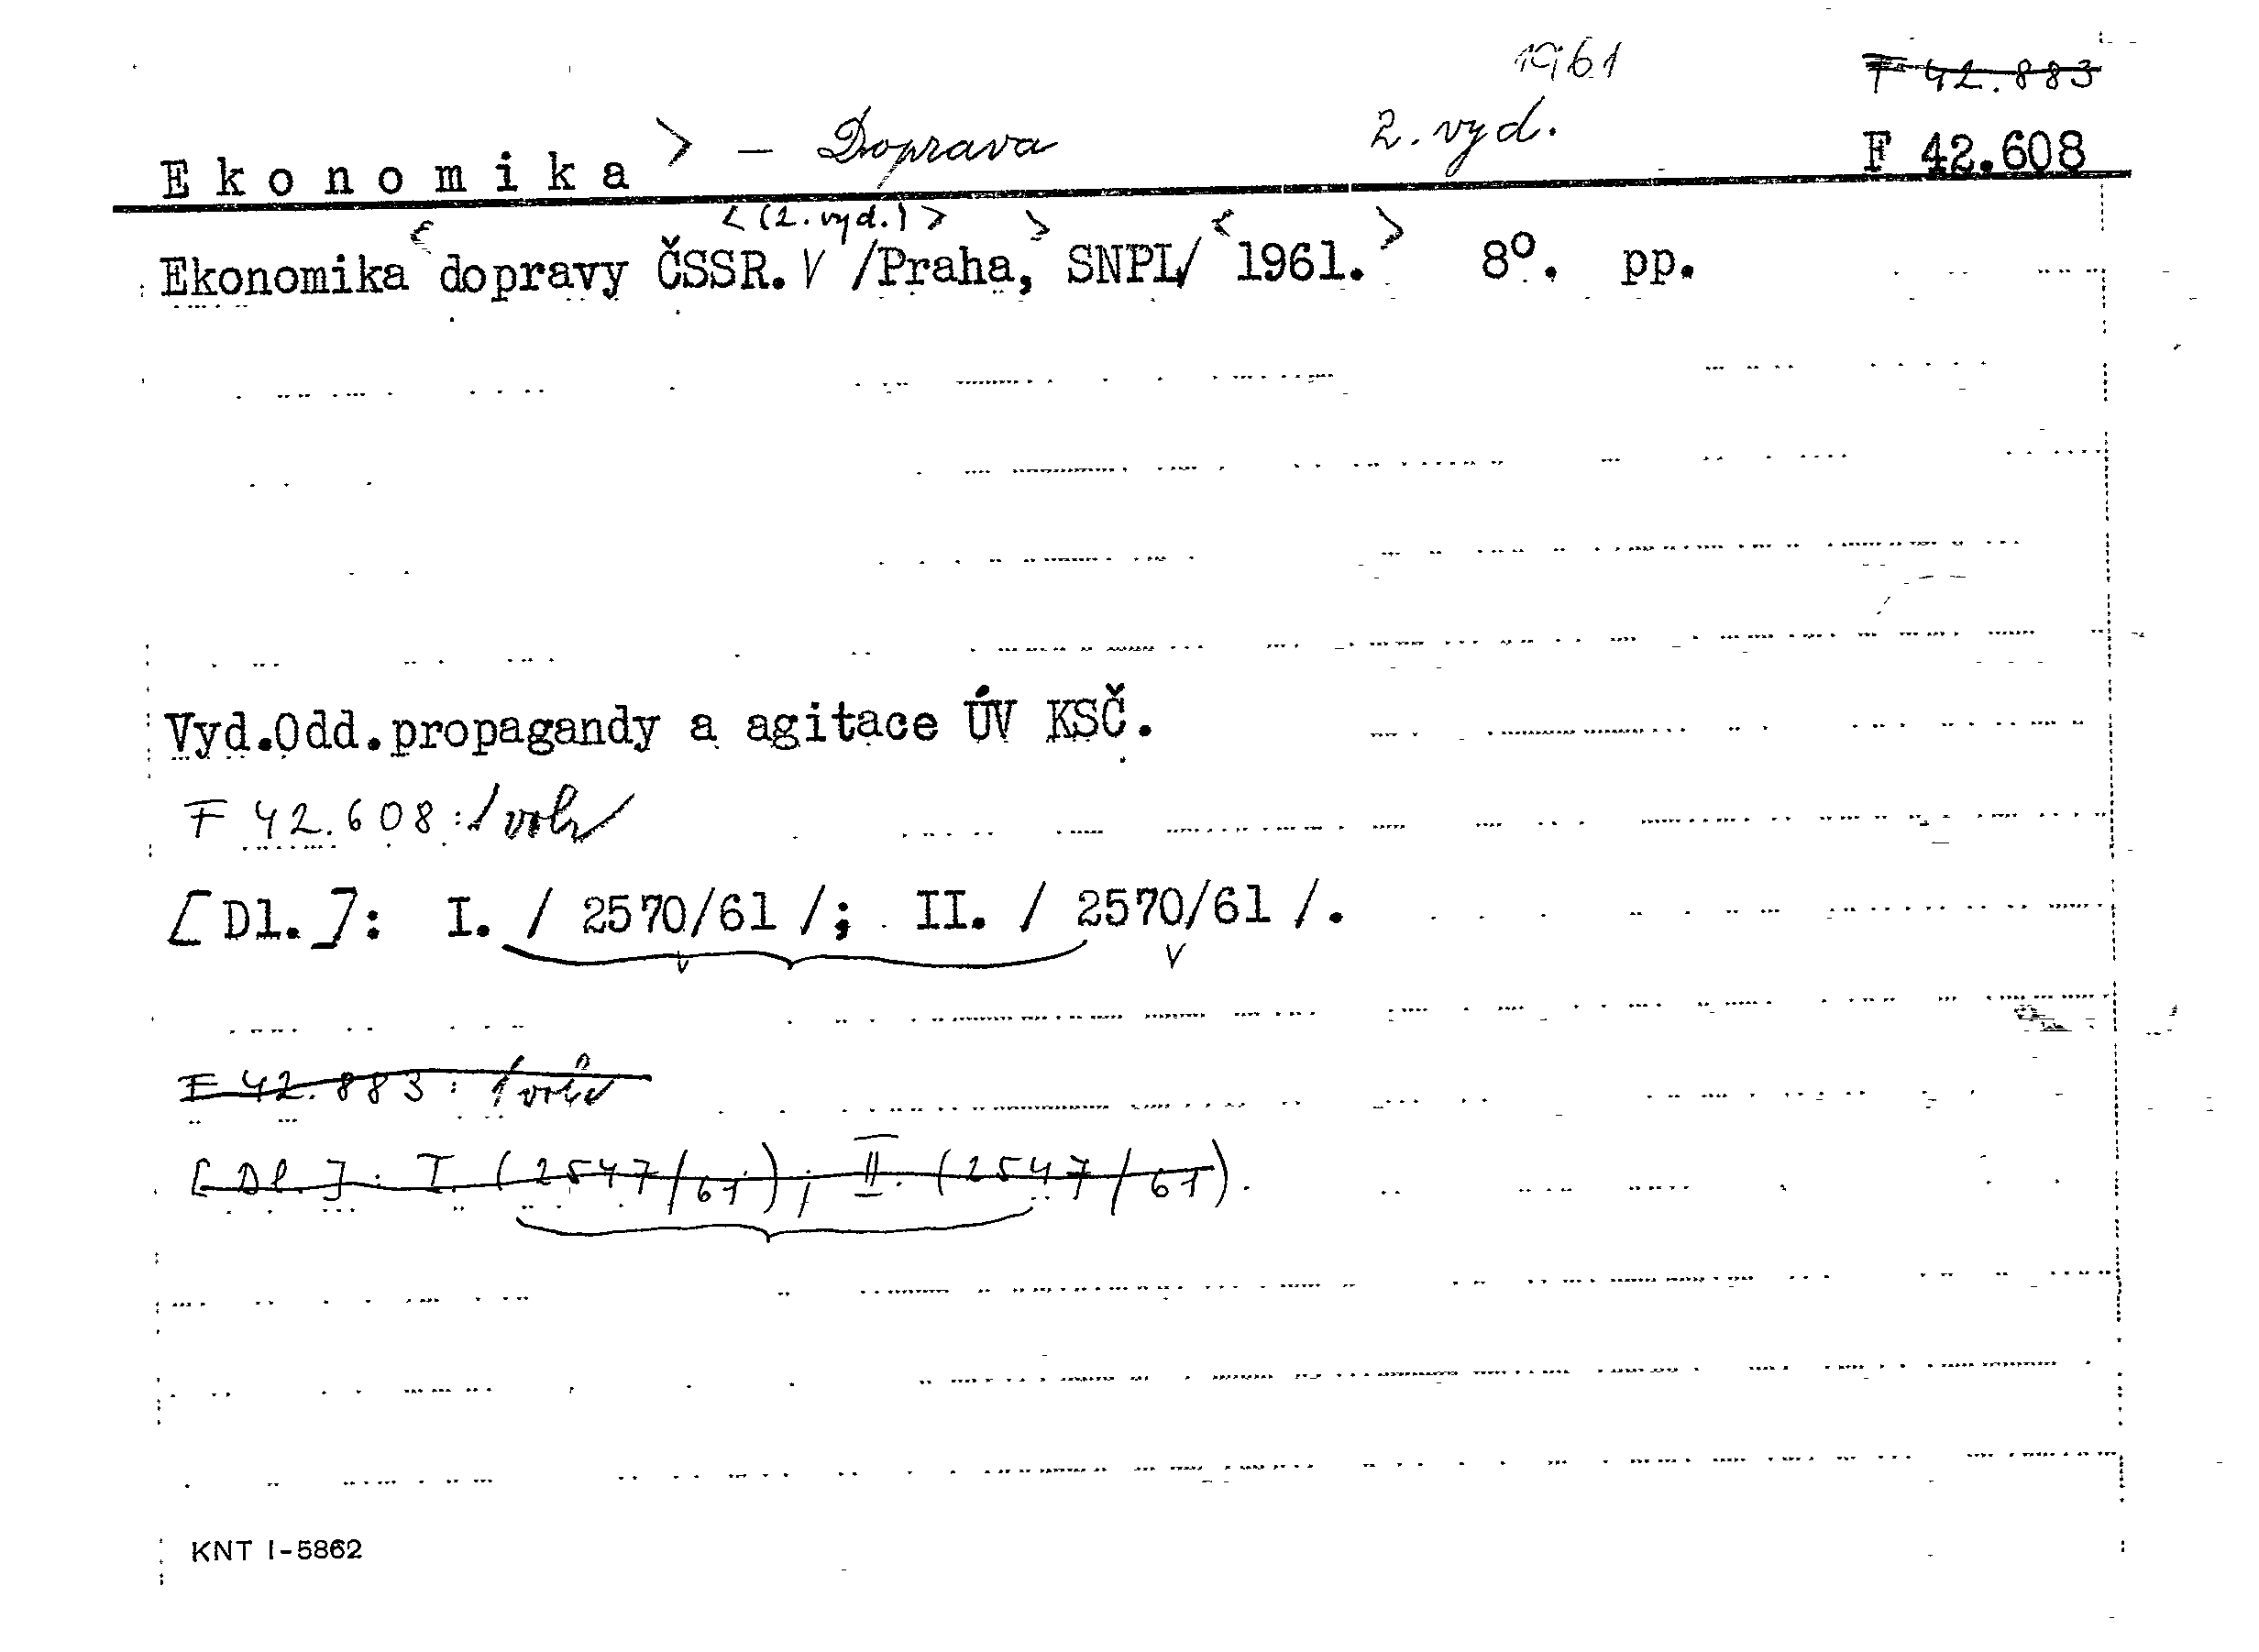 1961 F 42.883
Ekonomika > – Doprava 2. vyd. F 42.608
<(2. vyd.)>
Ekonomika dopravy ČSSR. V /Praha, SNPL/ 1961. 8°. pp.
Vyd.Odd.propagandy a agitace ÚV KSČ.
F 42.608:
[Dl.]: I. / 2570/61 /; II. / 2570/61 /.
F 42.883:
[Dl.]: I. (2547/61); II. (2547/61).
KNT I-5862